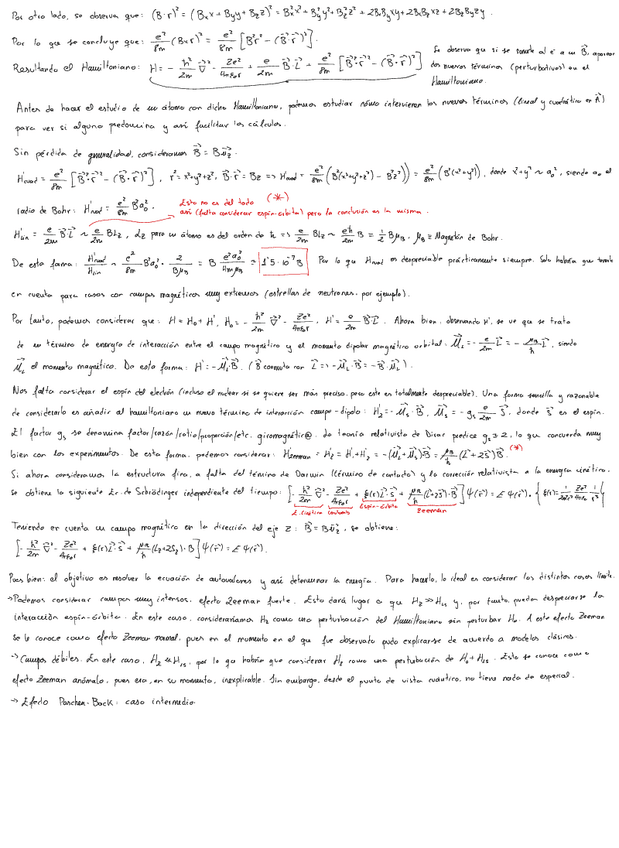 Por otro lado, se observa que: (B·r)² = (Bₓx + B_y y + B_z z)² = Bₓ²x² + B_y²y² + B_z²z² + 2BₓB_y xy + 2BₓB_z xz + 2B_yB_z yz.
Por lo que se concluye que: e²/8m (B×r)² = e²/8m [B²·r² − (B·r)²].
Resultando el Hamiltoniano: H = − ħ²/2m ∇² − Ze²/4πε₀r + e/2m B·L + e²/8m [B²·r² − (B·r)²] Se observa que si se somete al e⁻ a un B, aparecen
dos nuevos términos (perturbativos) en el
Hamiltoniano.
Antes de hacer el estudio de un átomo con dicho Hamiltoniano, podemos estudiar cómo intervienen los nuevos términos (lineal y cuadrático en B)
para ver si alguno predomina y así facilitar los cálculos.
Sin pérdida de generalidad, consideramos B = B u_z.
H'cuad = e²/8m [B²·r² − (B·r)²], r² = x²+y²+z², B·r = Bz => H'cuad = e²/8m (B²(x²+y²+z²) − B²z²) = e²/8m (B²(x²+y²)), donde x²+y² ~ a₀², siendo a₀ el
radio de Bohr: H'cuad = e²/8m B²a₀². Esto no es del todo (*)
así (falta considerar espín-órbita) pero la conclusión es la misma.
H'lin = e/2m B·L ~ e/2m BL_z, L_z para un átomo es del orden de ħ => e/2m BL_z ~ eħ/2m B = B μ_B. μ_B ≡ Magnetón de Bohr.
De esta forma: H'cuad/H'lin ~ e²/8m B²a₀² · 2/Bμ_B = B e²a₀²/4mμ_B = 1'5·10⁻⁷B Por lo que H'cuad es despreciable prácticamente siempre. Solo habría que tenerlo
en cuenta para casos con campos magnéticos muy extremos (estrellas de neutrones, por ejemplo).
Por tanto, podemos considerar que: H = H₀ + H', H₀ = − ħ²/2m ∇² − Ze²/4πε₀r, H' = e/2m B·L. Ahora bien, observando H', se ve que se trata
de un término de energía de interacción entre el campo magnético y el momento dipolar magnético orbital: M_L = − e/2m L = − μ_B/ħ L, siendo
M_L el momento magnético. De esta forma: H' = −M_L·B. (B conmuta con L => −M_L·B = −B·M_L).
Nos falta considerar el espín del electrón (incluso el nuclear si se quiere ser más preciso, pero este es totalmente despreciable). Una forma sencilla y razonable
de considerarlo es añadir al hamiltoniano un nuevo término de interacción campo-dipolo: H'₂ = −M_s·B, M_s = −g_s e/2m S, donde S es el espín.
El factor g_s se denomina factor/razón/ratio/proporción/etc. giromagnétic@. La teoría relativista de Dirac predice g_s ≈ 2, lo que concuerda muy
bien con los experimentos. De esta forma, podemos considerar: H_zeeman = H_z = H'₁+H'₂ = −(M_L+M_s)·B = μ_B/ħ (L+2S)·B. (*)
Si ahora consideramos la estructura fina, a falta del término de Darwin (término de contacto) y la corrección relativista a la energía cinética,
se obtiene la siguiente Ec. de Schrödinger independiente del tiempo: [− ħ²/2m ∇² − Ze²/4πε₀r + ξ(r)L·S + μ_B/ħ (L+2S)·B] Ψ(r) = E Ψ(r). {ξ(r) = 1/2m²c² Ze²/4πε₀ 1/r³}
E. cinética coulomb. Espín-órbita Zeeman
Teniendo en cuenta un campo magnético en la dirección del eje z: B = B u_z, se obtiene:
[− ħ²/2m ∇² − Ze²/4πε₀r + ξ(r)L·S + μ_B/ħ (L_z+2S_z)·B] Ψ(r) = E Ψ(r).
Pues bien: el objetivo es resolver la ecuación de autovalores y así determinar la energía. Para hacerlo, lo ideal es considerar los distintos casos límite.
-> Podemos considerar campos muy intensos, efecto Zeeman fuerte. Esto dará lugar a que H_z >> H_LS y, por tanto, pueda despreciarse la
interacción espín-órbita. En este caso, consideraríamos H_z como una perturbación del Hamiltoniano sin perturbar H₀. A este efecto Zeeman
se lo conoce como efecto Zeeman normal, pues en el momento en el que fue observado pudo explicarse de acuerdo a modelos clásicos.
-> Campos débiles. En este caso, H_z << H_LS, por lo que habría que considerar H_z como una perturbación de H₀ + H_LS. Esto se conoce como
efecto Zeeman anómalo, pues era, en su momento, inexplicable. Sin embargo, desde el punto de vista cuántico, no tiene nada de especial.
-> Efecto Paschen-Back: caso intermedio.